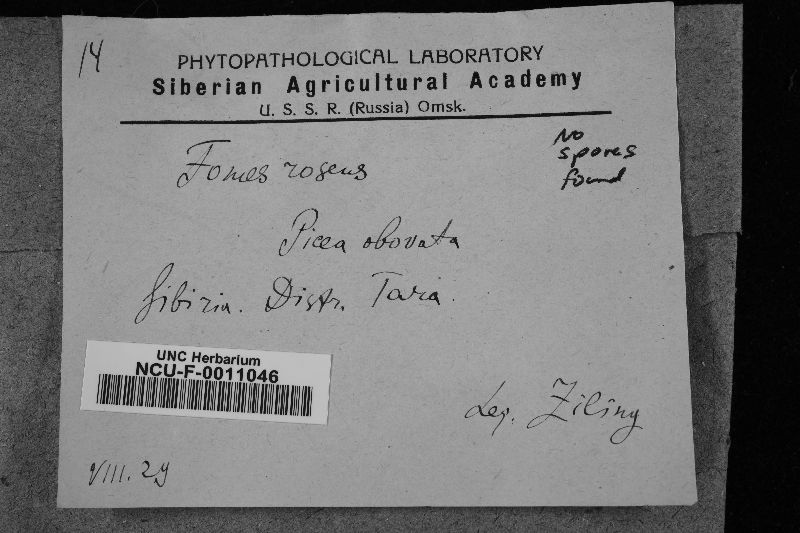 14
PHYTOPATHOLOGICAL LABORATORY
Siberian Agricultural Academy
U. S. S. R. (Russia) Omsk.
No
spores
found
Fomes roseus
Picea obovata
Sibiria. Distr. Tara.
UNC Herbarium
NCU-F-0011046
Leg. Ziling
VIII. 29